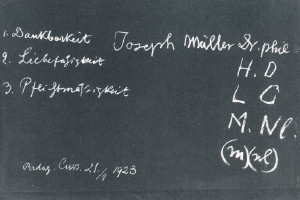 1. Dankbarkeit
2. Liebefähigkeit
3. Pflichtmäßigkeit
Joseph Müller Dr. phil
H. D
L C
M. Nl.
(m)(nl)
21/9 1923